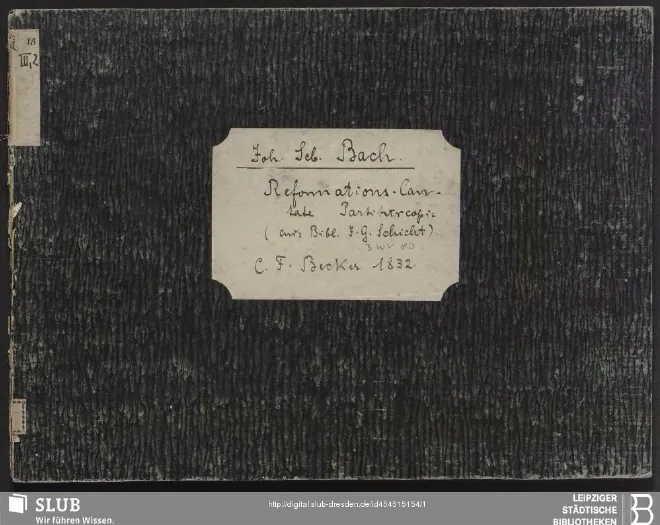 18
III,2
Joh. Seb. Bach.
Reformations-Can-
tate Partiturcopie
(aus Bibl. J. G. Schicht).
BWV 80
C. F. Becker 1832.
SLUB
Wir führen Wissen.
http://digital.slub-dresden.de/id454515154/1
LEIPZIGER
STÄDTISCHE
BIBLIOTHEKEN